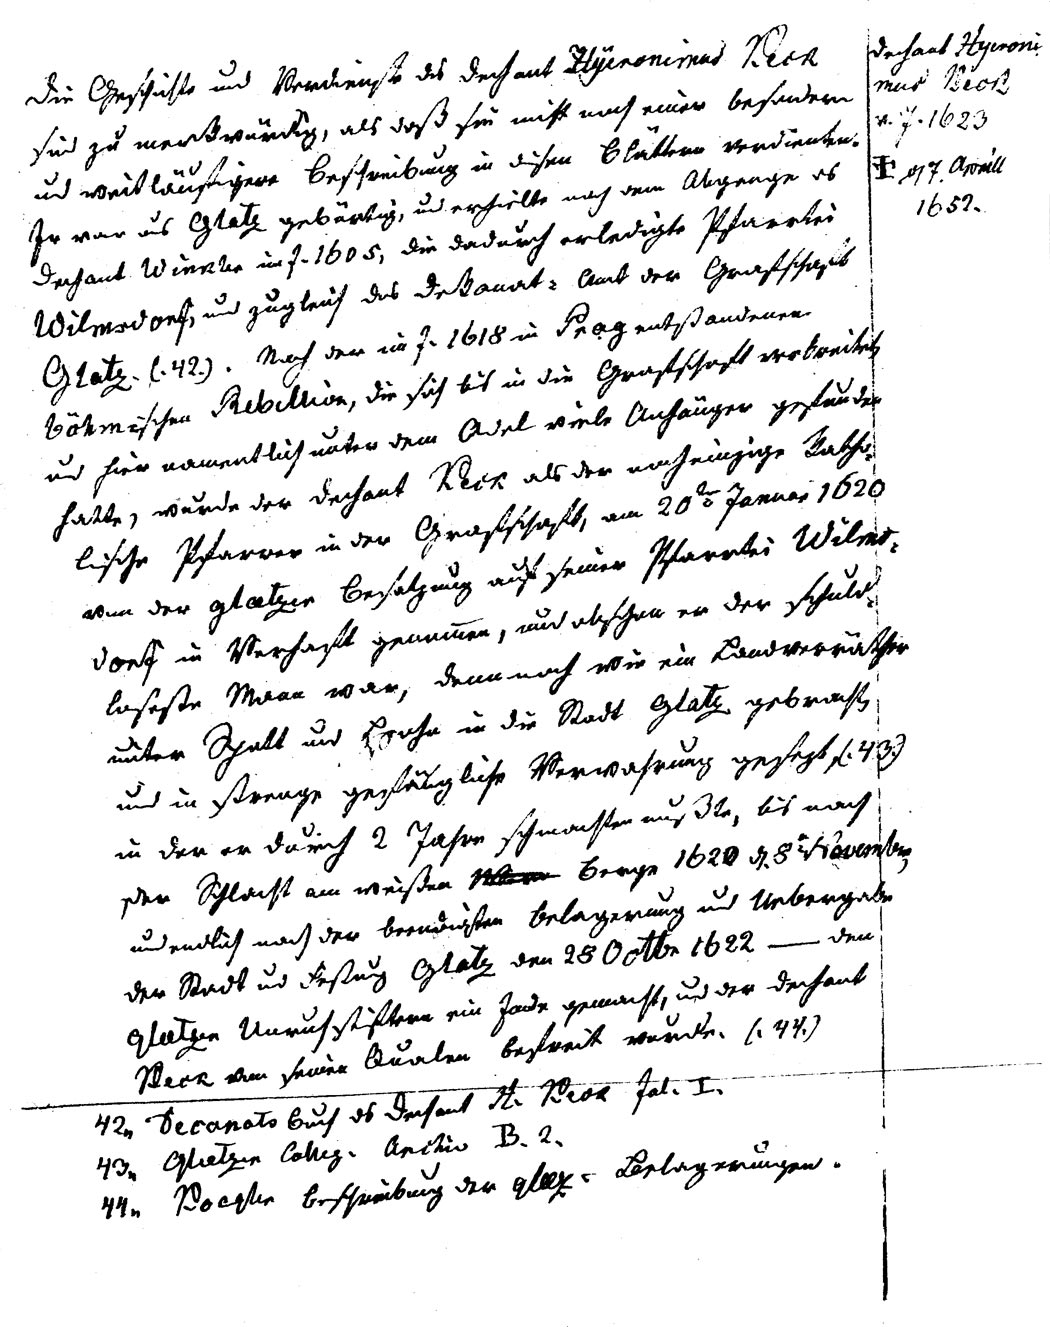 Die Geschichte und Verdienste des Dechant Hyeronimus Keck
sind zu merkwürdig, als daß sie nicht noch einer besondern
und weitläufigern Beschreibung in disen Blättern verdienten.
Er war aus Glatz gebürtig, und erhielte nach dem Abgange des
Dechant Winkler im J. 1605, die dadurch erledigte Pfarrtei
Wilmsdorf, und zugleich das Dekanat-Amt der Grafschaft
Glatz. (.42.). Nach der im J. 1618 in Prag entstandenen
böhmischen Rebellion, die sich bis in die Grafschaft verbreitet,
und hier namentlich unter dem Adel viele Anhänger gefunden
hatte, wurde der Dechant Keck als der noch einzige katho-
lische Pfarrer in der Grafschaft, am 20ten Januar 1620
von der glatzer Besatzung auf seiner Pfarrtei Wilms-
dorf in Verhaft genommen, und obschon er der schuld-
loseste Mann war, dennnoch wie ein Landverräther
unter Spott und Hohn in die Stadt Glatz gebracht,
und in strenge gefängliche Verwahrung gesetzt, (.43.)
in der er durch 2 Jahre schmachten mußte, bis nach
der Schlacht am weißen Berge 1620 d. 8ten November,
und endlich nach der beendigten Belagerung und Uebergabe
der Stadt und Festung Glatz den 28 Octbr 1622 — den
glatzer Unruhstiftern ein Ende gemacht, und der Dechant
Keck von seinen Qualen befreit wurde. (.44.)
42., Decanats Buch des Dechant H. Keck Fol. I.
43., Glatzer Colleg. Archiv B. 2.
44., Kögler Beschreibung der glatz- Belagerungen.
Dechant Hyeroni
mus Keck
v. J. 1623
‡ 17. Aprill
1652.